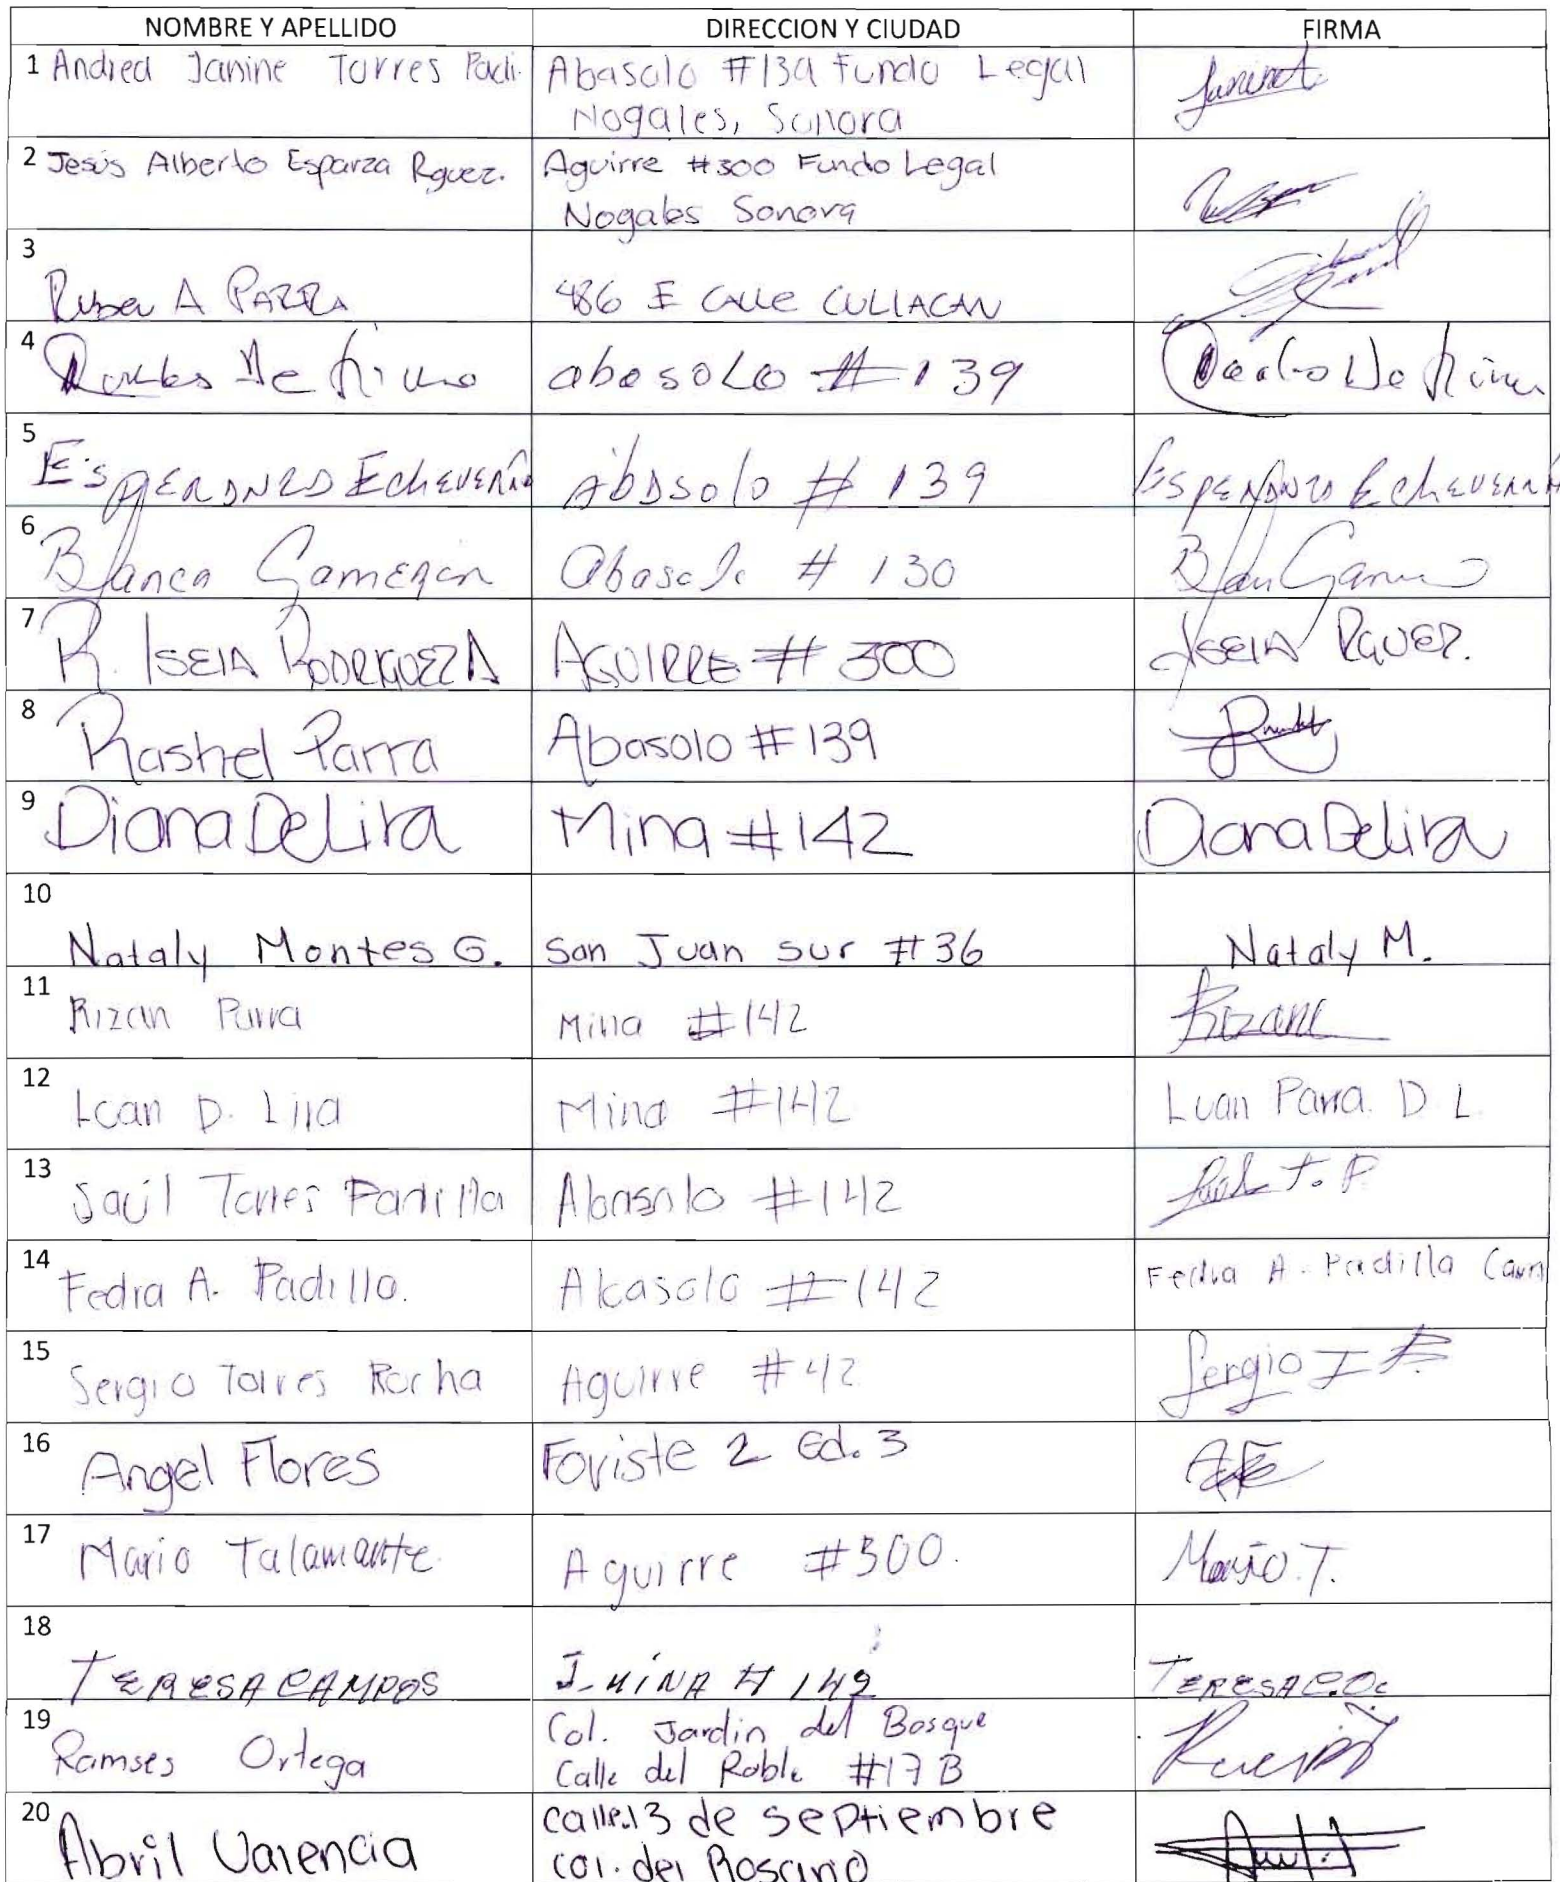 NOMBRE Y APELLIDO DIRECCION Y CIUDAD FIRMA
1 Andrea Janine Torres Padi. Abasolo #139 Fundo Legal
Nogales, Sonora
2 Jesús Alberto Esparza Rguez. Aguirre #300 Fundo Legal
Nogales Sonora
3
Ruben A PARRA 486 E Calle CULIACAN
4
De abasolo # 139 De
5
ESPERANZA EchEVERRÍA Abasolo # 139 ESPERANZA EchEVERRÍA
6
Blanca Gamezan Abasolo # 130
7
R. ISELA RODRIGUEZ A AGUIRRE # 300 ISELA RGUEZ.
8
Rashel Parra Abasolo #139
9
Diana DeLira Mina #142 Diana Delira
10
Nataly Montes G. San Juan sur #36 Nataly M.
11
Rizan Parra Mina #142 Rizan
12
D. Lira Mina #142 Luan Parra. D L
13
Saúl Torres Padilla Abasolo #142 T. P
14
Fedra A. Padilla. Abasolo #142 Fedra A. Padilla Cam
15
Sergio Torres Rocha Aguirre #42 Sergio
16
Angel Flores Foviste 2 Ed. 3
17
Mario Talamante. Aguirre #300. Mario. T.
18
TERESA CAMPOS J. MINA # 142 TERESA C.O.
19
Ramses Ortega Col. Jardin del Bosque
Calle del Roble #17 B
20
Abril Valencia calle 13 de septiembre
col. del Rosario